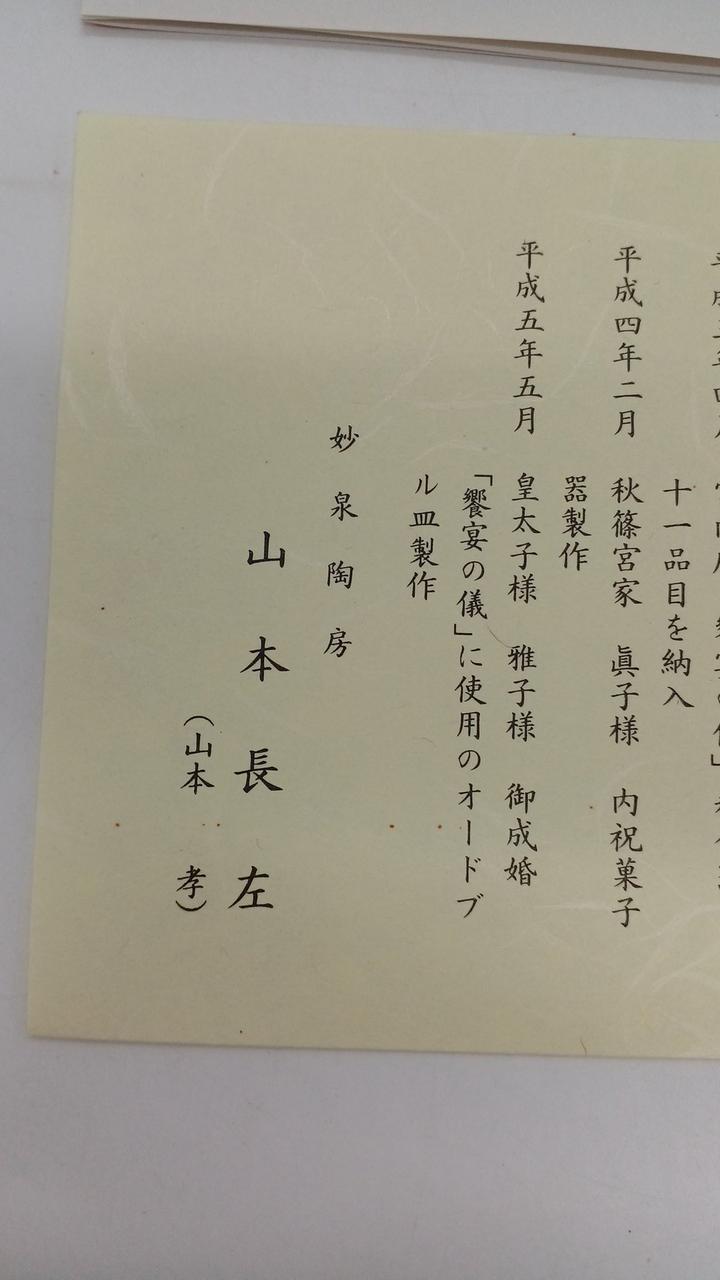 十一品目を納入
平成四年二月　秋篠宮家　眞子様　内祝菓子
器製作
平成五年五月　皇太子様　雅子様　御成婚
「饗宴の儀」に使用のオードブ
ル皿製作
妙泉陶房
山本長左
（山本　孝）